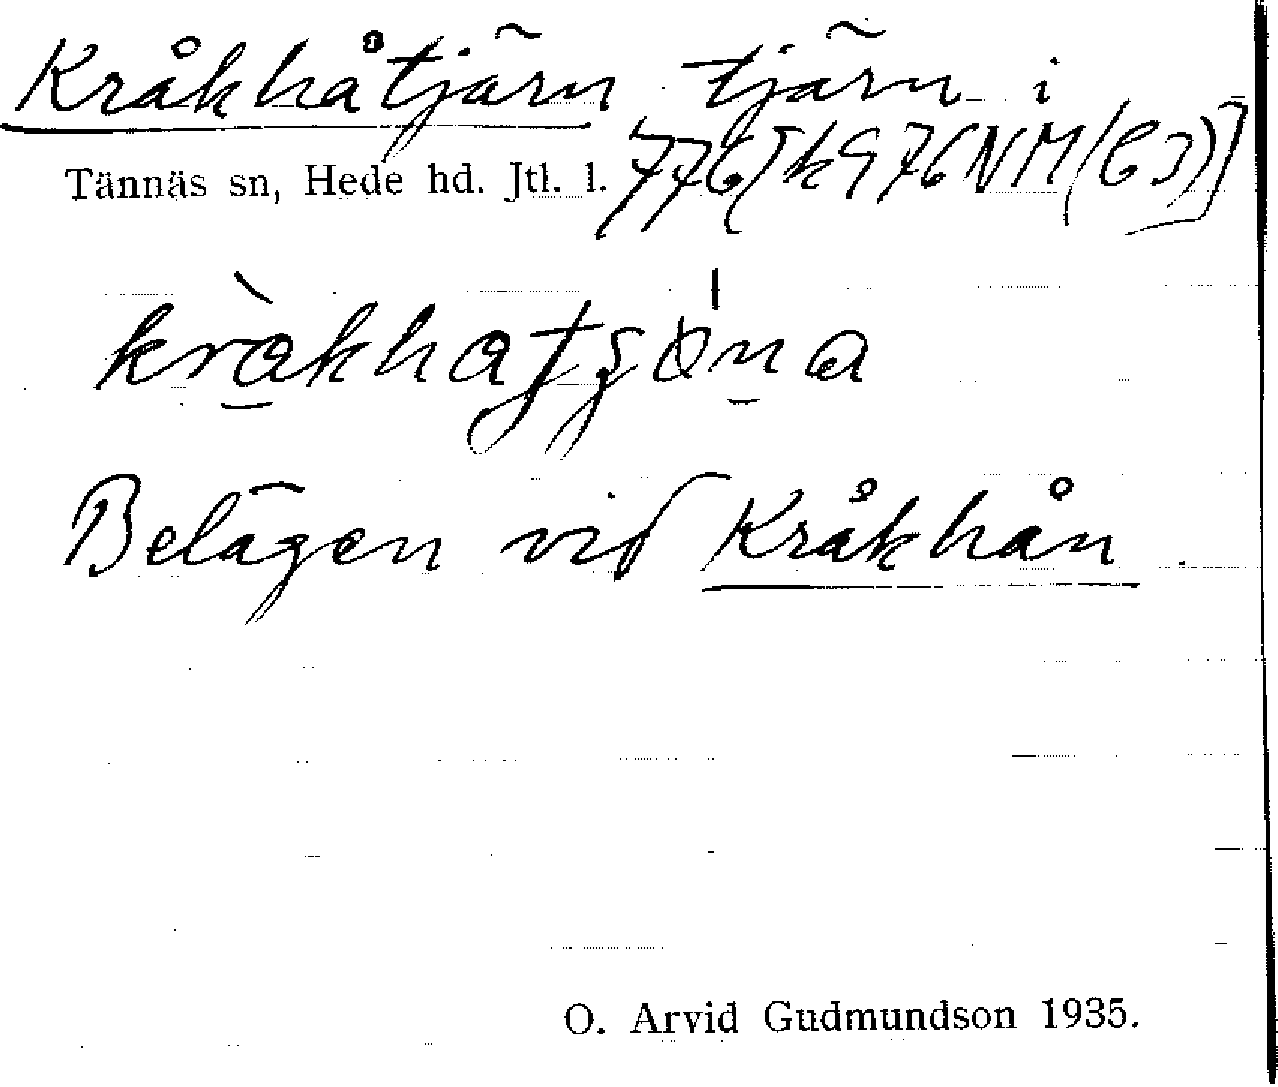 Kråkhåtjärn tjärn i
Tännäs sn, Hede hd. Jtl. l. 776[k976NM(C3)]
kràkhatjö́na
Belägen vid Kråkhån.
O. Arvid Gudmundson 1935.